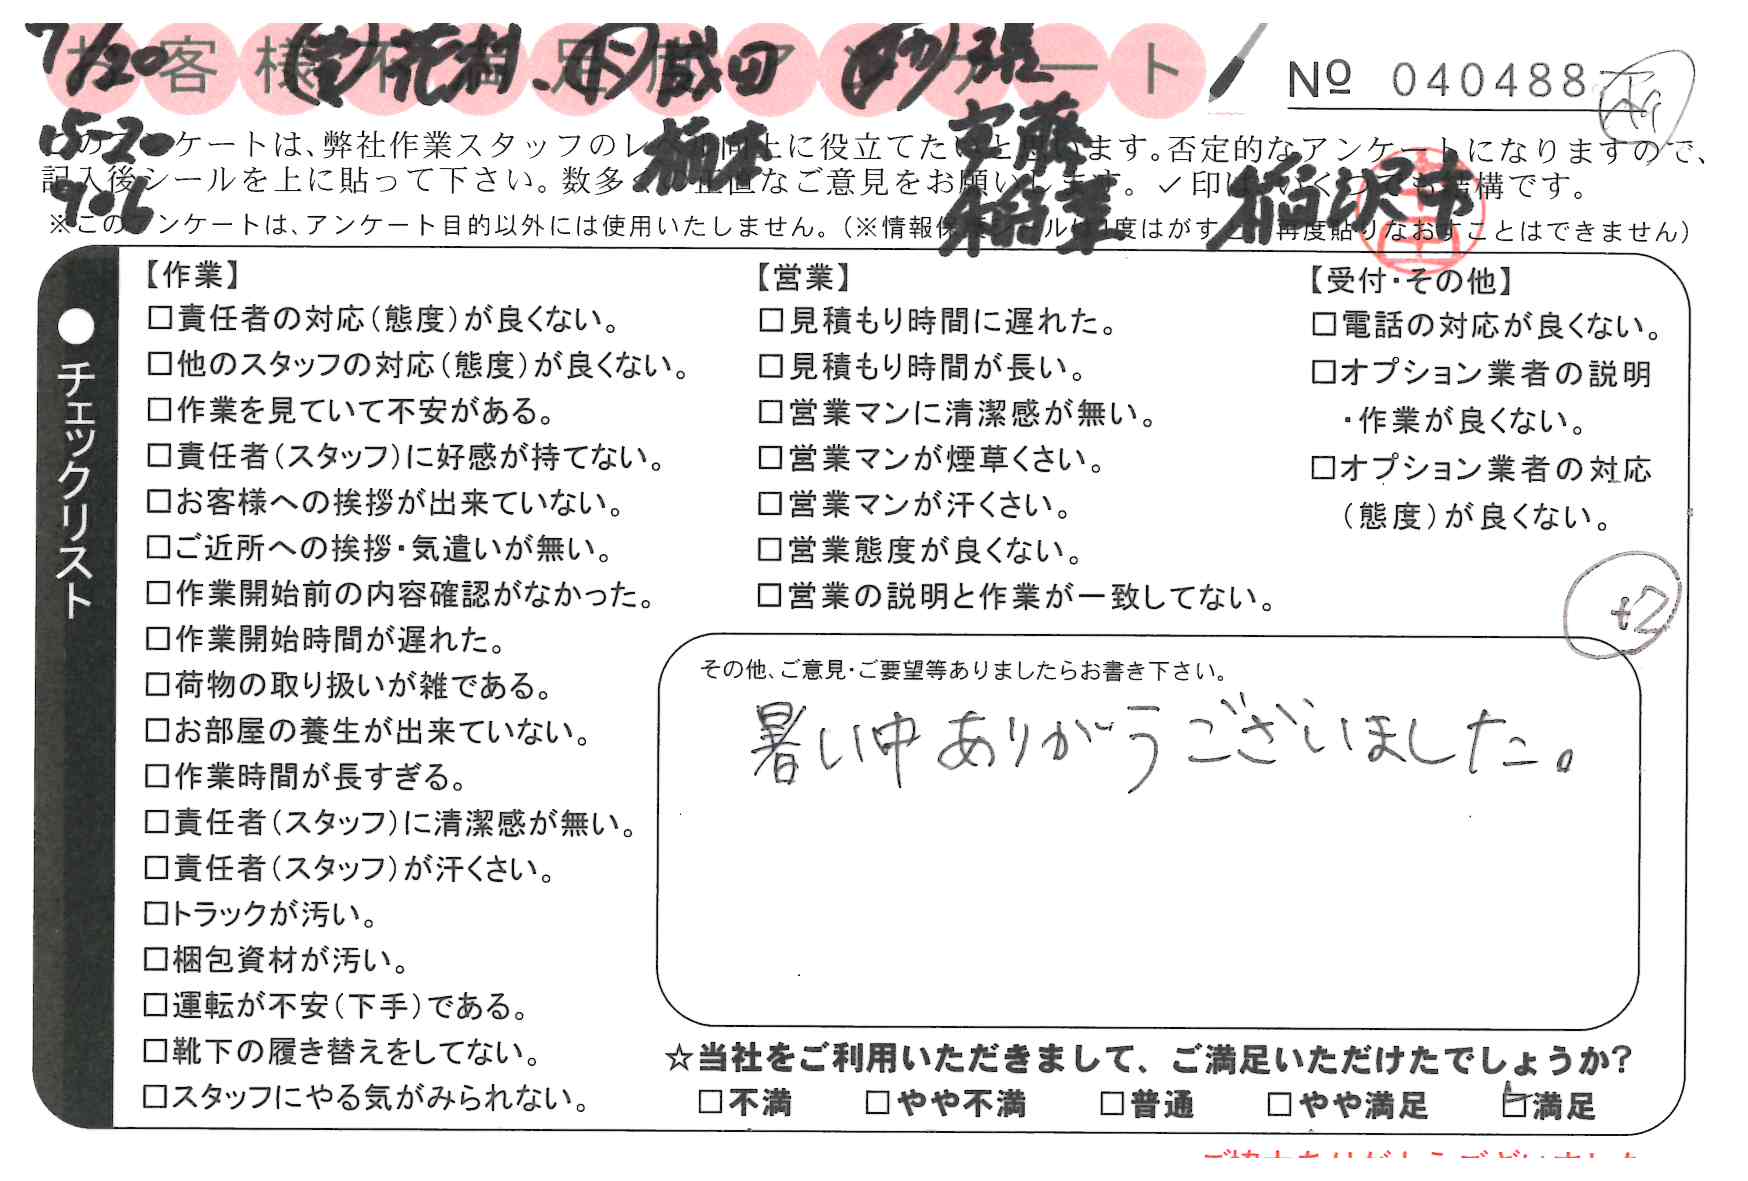 7/20
お客様不満足度アンケート
№ 040488
15-20
906
このアンケートは、弊社作業スタッフのレベル向上に役立てたいと思います。否定的なアンケートになりますので、
記入後シールを上に貼って下さい。数多くの正直なご意見をお願いします。✓印はいくつでも結構です。
※このアンケートは、アンケート目的以外には使用いたしません。(※情報保護シールは1度はがすと、再度貼りなおすことはできません)
安藤
稲葉
稲沢市
●チェックリスト
【作業】
□責任者の対応(態度)が良くない。
□他のスタッフの対応(態度)が良くない。
□作業を見ていて不安がある。
□責任者(スタッフ)に好感が持てない。
□お客様への挨拶が出来ていない。
□ご近所への挨拶・気遣いが無い。
□作業開始前の内容確認がなかった。
□作業開始時間が遅れた。
□荷物の取り扱いが雑である。
□お部屋の養生が出来ていない。
□作業時間が長すぎる。
□責任者(スタッフ)に清潔感が無い。
□責任者(スタッフ)が汗くさい。
□トラックが汚い。
□梱包資材が汚い。
□運転が不安(下手)である。
□靴下の履き替えをしてない。
□スタッフにやる気がみられない。
【営業】
□見積もり時間に遅れた。
□見積もり時間が長い。
□営業マンに清潔感が無い。
□営業マンが煙草くさい。
□営業マンが汗くさい。
□営業態度が良くない。
□営業の説明と作業が一致してない。
【受付・その他】
□電話の対応が良くない。
□オプション業者の説明
・作業が良くない。
□オプション業者の対応
(態度)が良くない。
t2
その他、ご意見・ご要望等ありましたらお書き下さい。
暑い中ありがうございました。
☆当社をご利用いただきまして、ご満足いただけたでしょうか?
□不満 □やや不満 □普通 □やや満足 ☑満足